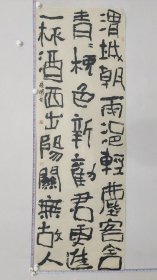 渭城朝雨浥輕塵客舍
青〻柳色新勸君更進
一杯酒西出陽關無故人